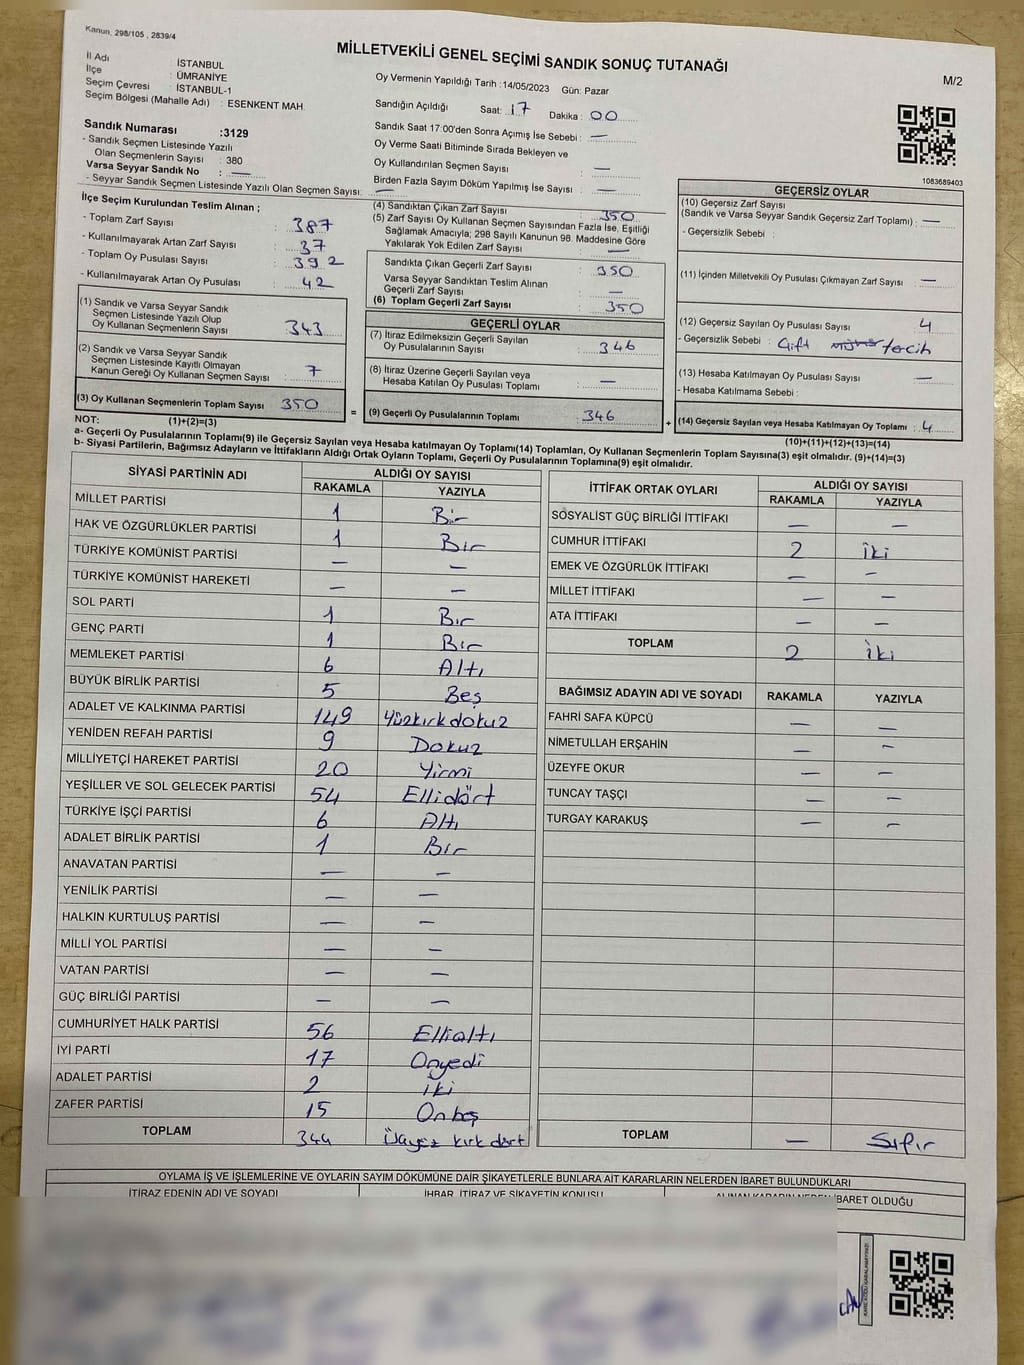 Kanun, 298/105 , 2839/4
MİLLETVEKİLİ GENEL SEÇİMİ SANDIK SONUÇ TUTANAĞI
M/2
İl Adı : İSTANBUL
İlçe : ÜMRANİYE
Seçim Çevresi : İSTANBUL-1
Seçim Bölgesi (Mahalle Adı) : ESENKENT MAH.
Sandık Numarası :3129
- Sandık Seçmen Listesinde Yazılı
Olan Seçmenlerin Sayısı : 380
Varsa Seyyar Sandık No : —
- Seyyar Sandık Seçmen Listesinde Yazılı Olan Seçmen Sayısı: —
Oy Vermenin Yapıldığı Tarih :14/05/2023 Gün: Pazar
Sandığın Açıldığı Saat: 17 Dakika : 00
Sandık Saat 17:00'den Sonra Açımış İse Sebebi : —
Oy Verme Saati Bitiminde Sırada Bekleyen ve
Oy Kullandırılan Seçmen Sayısı : —
Birden Fazla Sayım Döküm Yapılmış İse Sayısı : —
1083689403
İlçe Seçim Kurulundan Teslim Alınan ;
- Toplam Zarf Sayısı : 387
- Kullanılmayarak Artan Zarf Sayısı : 37
- Toplam Oy Pusulası Sayısı : 392
- Kullanılmayarak Artan Oy Pusulası : 42
(1) Sandık ve Varsa Seyyar Sandık
Seçmen Listesinde Yazılı Olup
Oy Kullanan Seçmenlerin Sayısı : 343
(2) Sandık ve Varsa Seyyar Sandık
Seçmen Listesinde Kayıtlı Olmayan
Kanun Gereği Oy Kullanan Seçmen Sayısı : 7
(3) Oy Kullanan Seçmenlerin Toplam Sayısı : 350
(4) Sandıktan Çıkan Zarf Sayısı : 350
(5) Zarf Sayısı Oy Kullanan Seçmen Sayısından Fazla İse, Eşitliği
Sağlamak Amacıyla; 298 Sayılı Kanunun 98. Maddesine Göre
Yakılarak Yok Edilen Zarf Sayısı : —
Sandıkta Çıkan Geçerli Zarf Sayısı : 350
Varsa Seyyar Sandıktan Teslim Alınan
Geçerli Zarf Sayısı : —
(6) Toplam Geçerli Zarf Sayısı : 350
GEÇERLİ OYLAR
(7) İtiraz Edilmeksizin Geçerli Sayılan
Oy Pusulalarının Sayısı : 346
(8) İtiraz Üzerine Geçerli Sayılan veya
Hesaba Katılan Oy Pusulası Toplamı : —
= (9) Geçerli Oy Pusulalarının Toplamı : 346
GEÇERSİZ OYLAR
(10) Geçersiz Zarf Sayısı
(Sandık ve Varsa Seyyar Sandık Geçersiz Zarf Toplamı) : —
- Geçersizlik Sebebi :
(11) İçinden Milletvekili Oy Pusulası Çıkmayan Zarf Sayısı : —
(12) Geçersiz Sayılan Oy Pusulası Sayısı : 4
- Geçersizlik Sebebi : Çift tercih
(13) Hesaba Katılmayan Oy Pusulası Sayısı : —
- Hesaba Katılmama Sebebi :
+ (14) Geçersiz Sayılan veya Hesaba Katılmayan Oy Toplamı : 4
NOT: (1)+(2)=(3)
(10)+(11)+(12)+(13)=(14)
a- Geçerli Oy Pusulalarının Toplamı(9) ile Geçersiz Sayılan veya Hesaba katılmayan Oy Toplamı(14) Toplamları, Oy Kullanan Seçmenlerin Toplam Sayısına(3) eşit olmalıdır. (9)+(14)=(3)
b- Siyasi Partilerin, Bağımsız Adayların ve İttifakların Aldığı Ortak Oyların Toplamı, Geçerli Oy Pusulalarının Toplamına(9) eşit olmalıdır.
SİYASİ PARTİNİN ADI ALDIĞI OY SAYISI
RAKAMLA YAZIYLA
MİLLET PARTİSİ 1 Bir
HAK VE ÖZGÜRLÜKLER PARTİSİ 1 Bir
TÜRKİYE KOMÜNİST PARTİSİ — —
TÜRKİYE KOMÜNİST HAREKETİ — —
SOL PARTİ 1 Bir
GENÇ PARTİ 1 Bir
MEMLEKET PARTİSİ 6 Altı
BÜYÜK BİRLİK PARTİSİ 5 Beş
ADALET VE KALKINMA PARTİSİ 149 Yüzkırkdokuz
YENİDEN REFAH PARTİSİ 9 Dokuz
MİLLİYETÇİ HAREKET PARTİSİ 20 Yirmi
YEŞİLLER VE SOL GELECEK PARTİSİ 54 Ellidört
TÜRKİYE İŞÇİ PARTİSİ 6 Altı
ADALET BİRLİK PARTİSİ 1 Bir
ANAVATAN PARTİSİ — —
YENİLİK PARTİSİ — —
HALKIN KURTULUŞ PARTİSİ — —
MİLLİ YOL PARTİSİ — —
VATAN PARTİSİ — —
GÜÇ BİRLİĞİ PARTİSİ — —
CUMHURİYET HALK PARTİSİ 56 Ellialtı
İYİ PARTİ 17 Onyedi
ADALET PARTİSİ 2 iki
ZAFER PARTİSİ 15 Onbeş
TOPLAM 344 Üçyüz kırk dört
İTTİFAK ORTAK OYLARI ALDIĞI OY SAYISI
RAKAMLA YAZIYLA
SOSYALİST GÜÇ BİRLİĞİ İTTİFAKI — —
CUMHUR İTTİFAKI 2 iki
EMEK VE ÖZGÜRLÜK İTTİFAKI — —
MİLLET İTTİFAKI — —
ATA İTTİFAKI — —
TOPLAM 2 iki
BAĞIMSIZ ADAYIN ADI VE SOYADI RAKAMLA YAZIYLA
FAHRİ SAFA KÜPCÜ — —
NİMETULLAH ERŞAHİN — —
ÜZEYFE OKUR — —
TUNCAY TAŞÇI — —
TURGAY KARAKUŞ — —
TOPLAM — Sıfır
OYLAMA İŞ VE İŞLEMLERİNE VE OYLARIN SAYIM DÖKÜMÜNE DAİR ŞİKAYETLERLE BUNLARA AİT KARARLARIN NELERDEN İBARET BULUNDUKLARI
İTİRAZ EDENİN ADI VE SOYADI İHBAR, İTİRAZ VE ŞİKAYETİN KONUSU ALINAN KARARIN NEDEN İBARET OLDUĞU